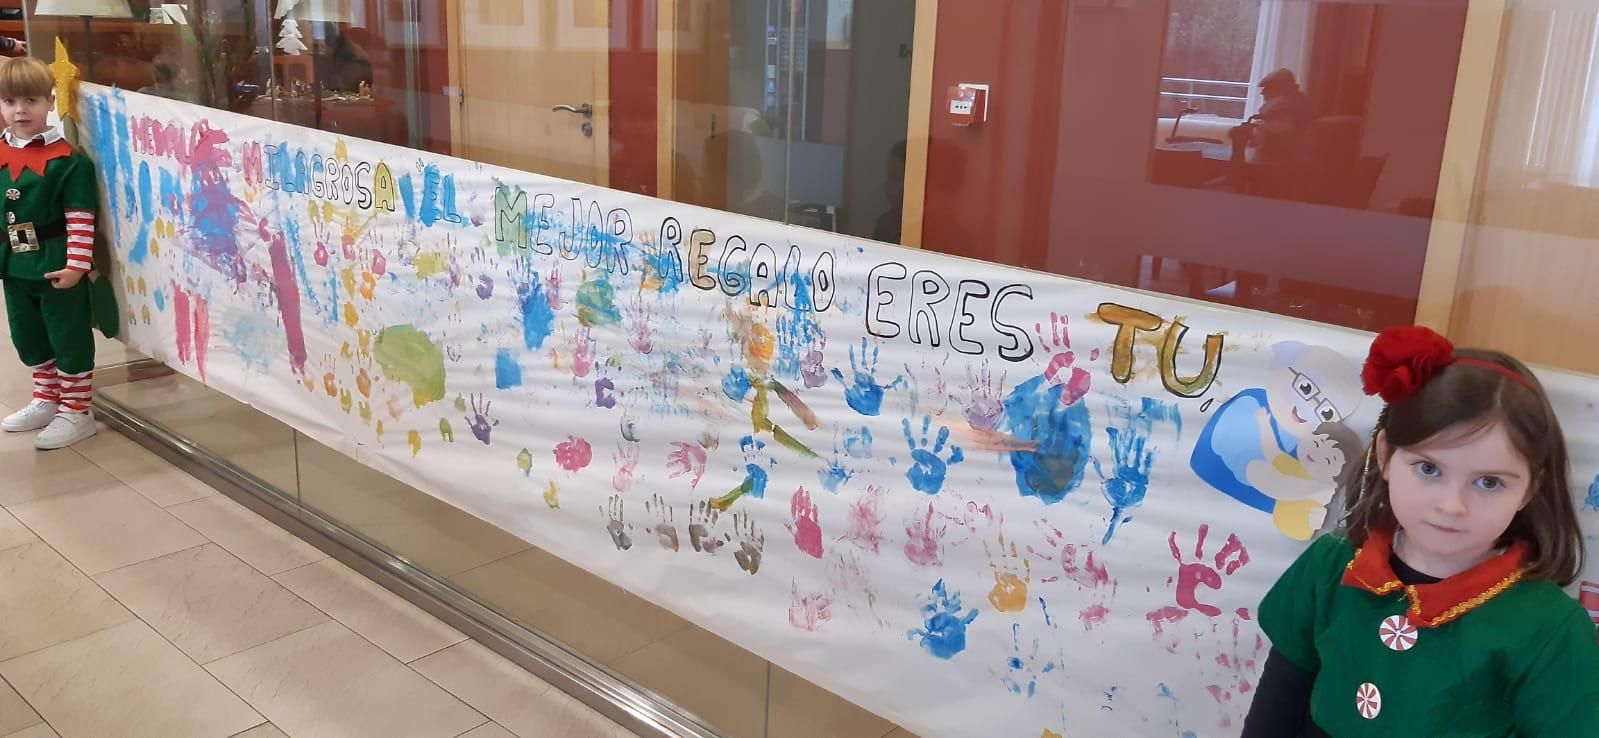 MEDALLA MILAGROSA "EL MEJOR REGALO ERES TU,